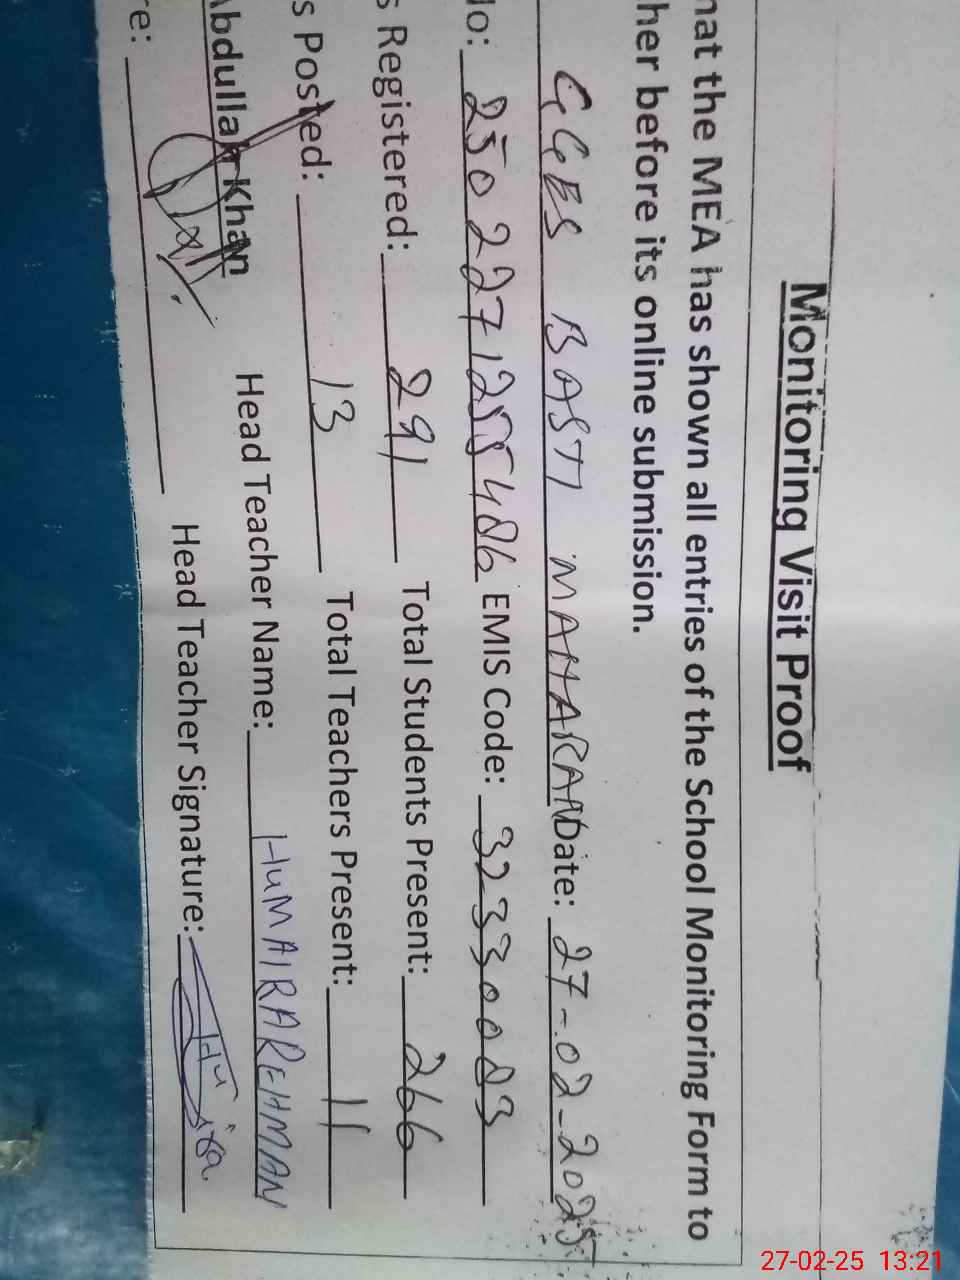 Monitoring Visit Proof
hat the MEA has shown all entries of the School Monitoring Form to
her before its online submission.
GGES BASTI MAHARAN Date: 27-02-2025
No: 2502271255486 EMIS Code: 32330083
s Registered: 291 Total Students Present: 266
s Posted: 13 Total Teachers Present: 11
Abdullah Khan Head Teacher Name: HUMAIRA REHMAN
re: Head Teacher Signature:
27-02-25 13:21